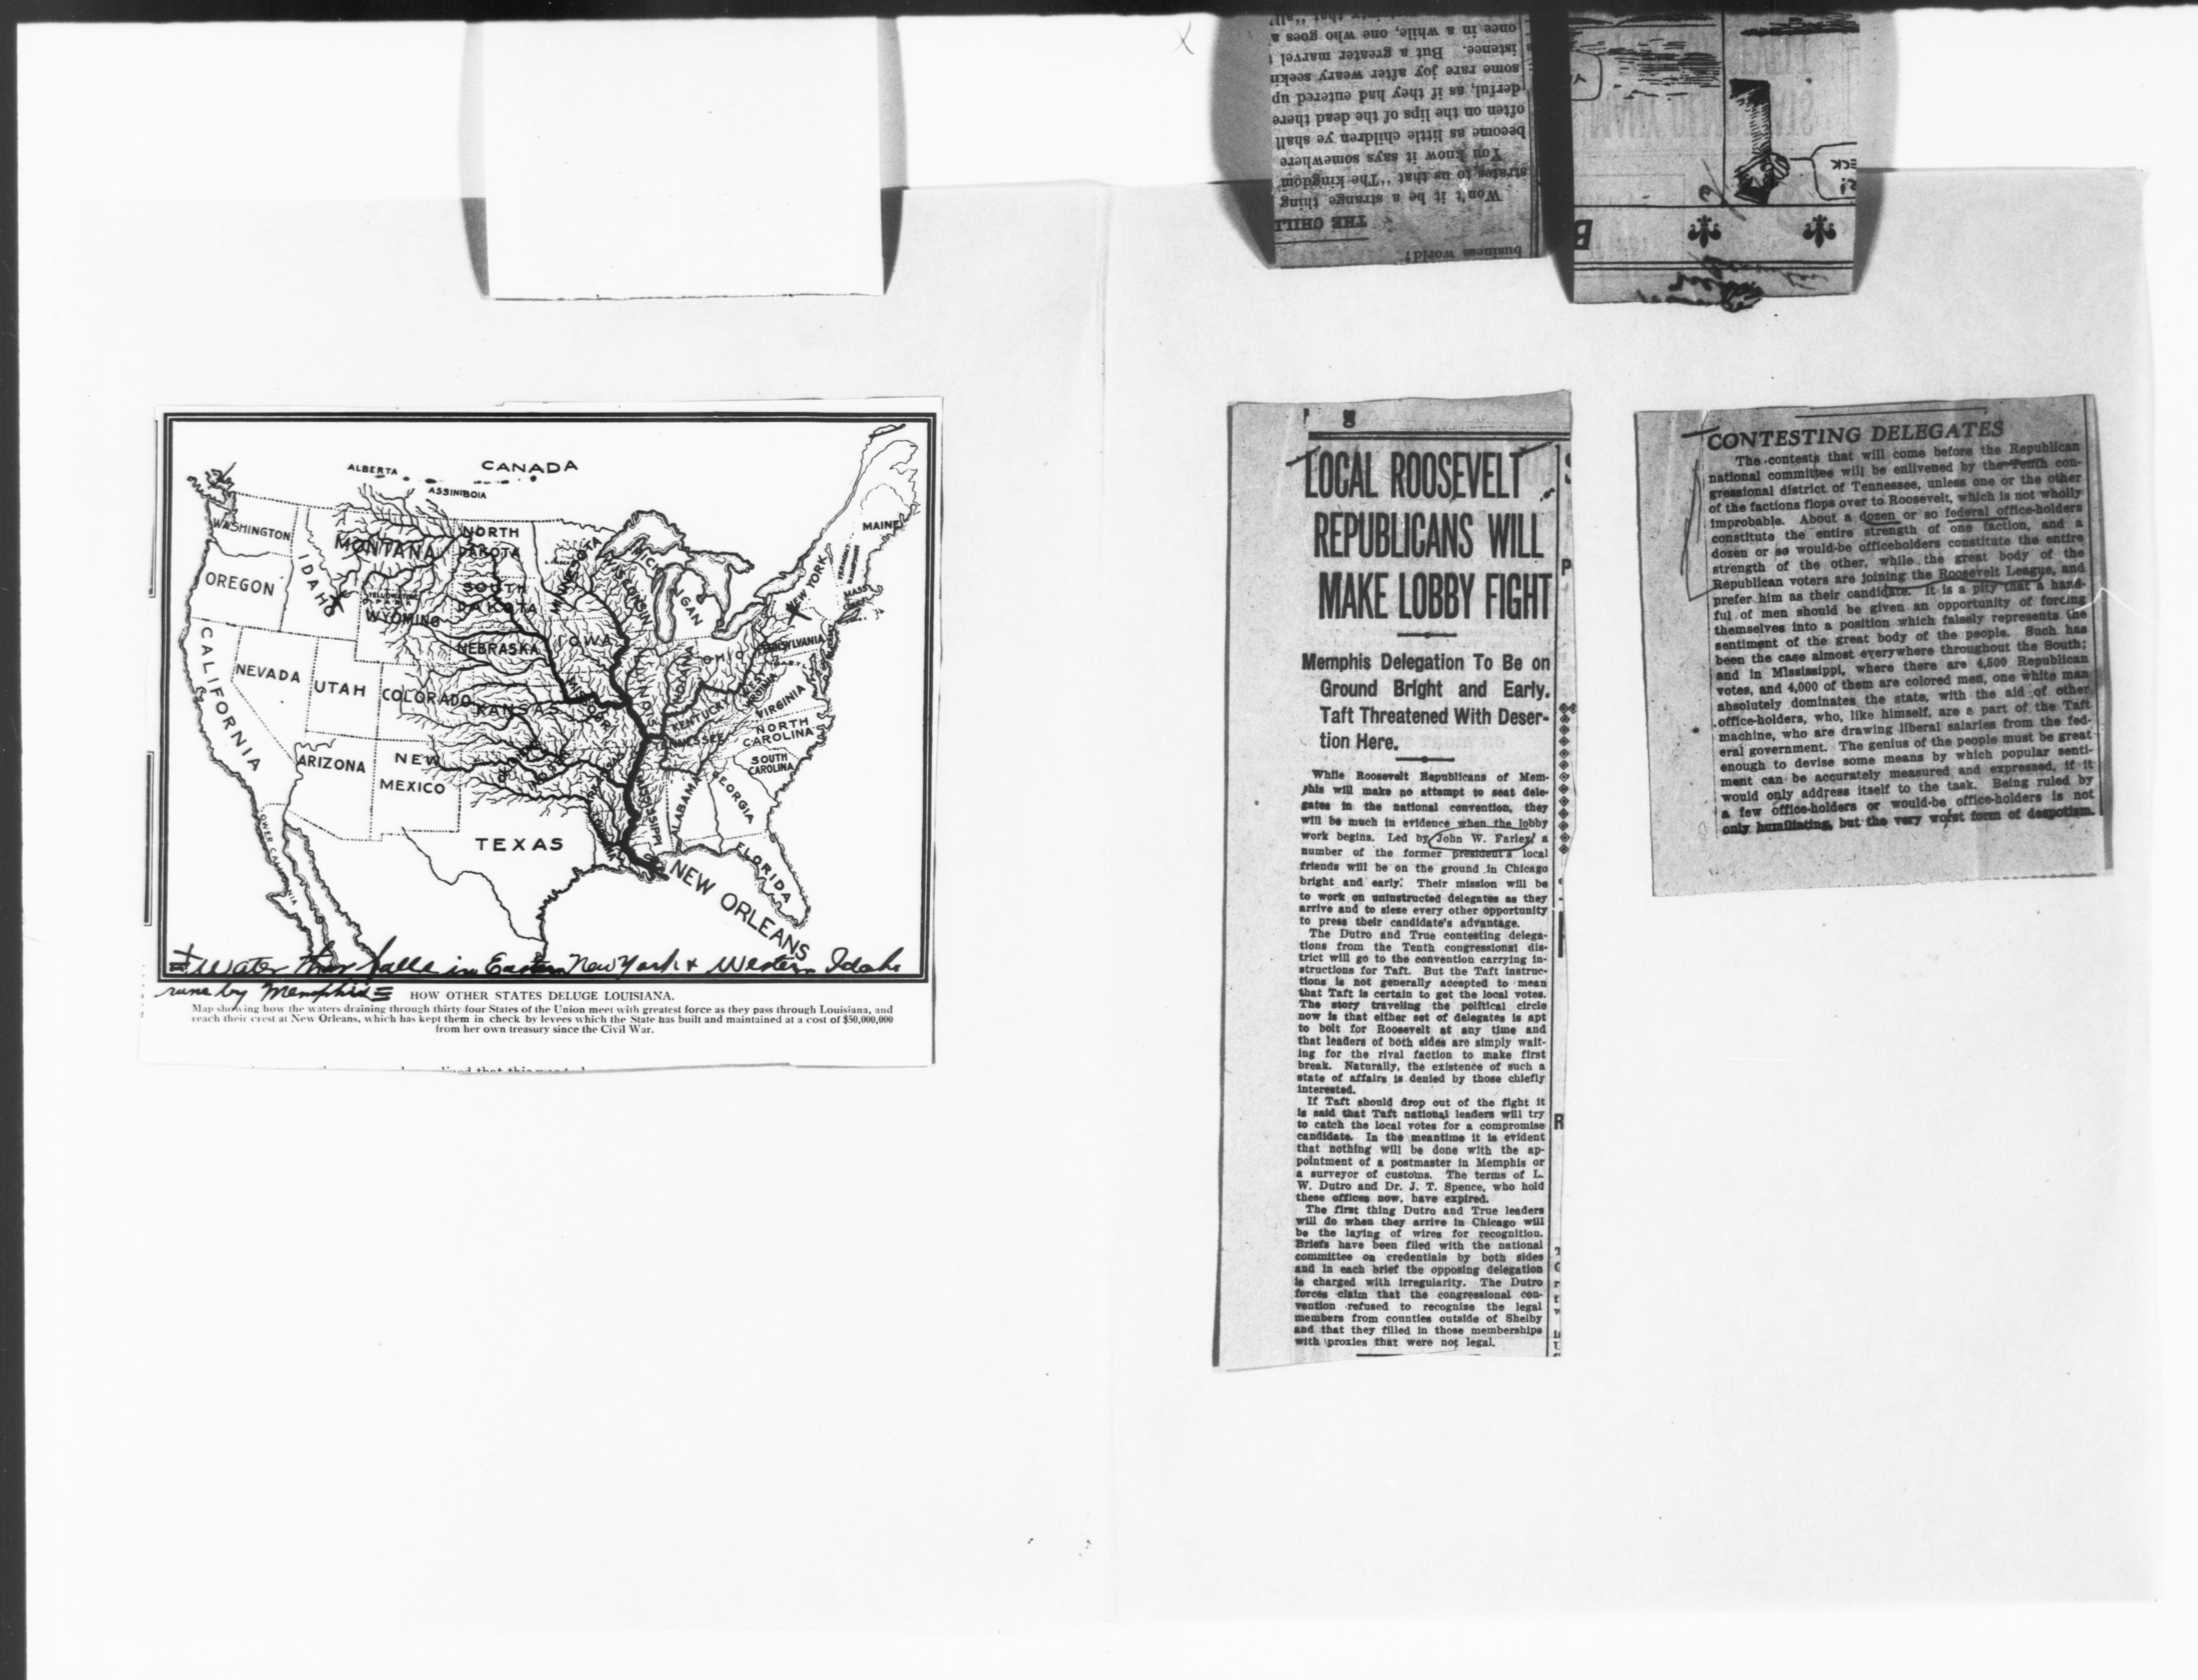 ALBERTA
CANADA
ASSINIBOIA
WASHINGTON
MONTANA
NORTH
DAKOTA
MAINE
OREGON
IDAHO
YELLOWSTONE
PARK
WYOMING
SOUTH
DAKOTA
MINNESOTA
WISCONSIN
MICHIGAN
NEW YORK
VERMONT
MASS
CALIFORNIA
NEVADA
UTAH
COLORADO
NEBRASKA
KANSAS
IOWA
MISSOURI
ILLINOIS
INDIANA
OHIO
PENNSYLVANIA
WEST
VIRGINIA
VIRGINIA
KENTUCKY
TENNESSEE
NORTH
CAROLINA
SOUTH
CAROLINA
ARIZONA
NEW
MEXICO
MISSISSIPPI
ALABAMA
GEORGIA
TEXAS
FLORIDA
LOWER CALIFORNIA
NEW ORLEANS
Water that falls in Eastern New York & Western Idaho
runs by Memphis
HOW OTHER STATES DELUGE LOUISIANA.
Map showing how the waters draining through thirty-four States of the Union meet with greatest force as they pass through Louisiana, and
reach their crest at New Orleans, which has kept them in check by levees which the State has built and maintained at a cost of $50,000,000
from her own treasury since the Civil War.
business world!
THE CHIL
Won't it be a strange thing
strates to us that "The kingdom
You know it says somewhere
become as little children ye shall
often on the lips of the dead there
derful, as if they had entered up
some rare joy after weary seekin
istence. But a greater marvel
once in a while, one who goes a
8
LOCAL ROOSEVELT
REPUBLICANS WILL
MAKE LOBBY FIGHT
Memphis Delegation To Be on
Ground Bright and Early.
Taft Threatened With Deser-
tion Here.
While Roosevelt Republicans of Mem-
phis will make no attempt to seat dele-
gates in the national convention, they
will be much in evidence when the lobby
work begins. Led by John W. Farley, a
number of the former president's local
friends will be on the ground in Chicago
bright and early. Their mission will be
to work on uninstructed delegates as they
arrive and to sieze every other opportunity
to press their candidate's advantage.
The Dutro and True contesting delega-
tions from the Tenth congressional dis-
trict will go to the convention carrying in-
structions for Taft. But the Taft instruc-
tions is not generally accepted to mean
that Taft is certain to get the local votes.
The story traveling the political circle
now is that either set of delegates is apt
to bolt for Roosevelt at any time and
that leaders of both sides are simply wait-
ing for the rival faction to make first
break. Naturally, the existence of such a
state of affairs is denied by those chiefly
interested.
If Taft should drop out of the fight it
is said that Taft national leaders will try
to catch the local votes for a compromise
candidate. In the meantime it is evident
that nothing will be done with the ap-
pointment of a postmaster in Memphis or
a surveyor of customs. The terms of L.
W. Dutro and Dr. J. T. Spence, who hold
these offices now, have expired.
The first thing Dutro and True leaders
will do when they arrive in Chicago will
be the laying of wires for recognition.
Briefs have been filed with the national
committee on credentials by both sides
and in each brief the opposing delegation
is charged with irregularity. The Dutro
forces claim that the congressional con-
vention refused to recognize the legal
members from counties outside of Shelby
and that they filled in those memberships
with proxies that were not legal.
CONTESTING DELEGATES
The contests that will come before the Republican
national committee will be enlivened by the Tenth con-
gressional district of Tennessee, unless one or the other
of the factions flops over to Roosevelt, which is not wholly
improbable. About a dozen or so federal office-holders
constitute the entire strength of one faction, and a
dozen or so would-be officeholders constitute the entire
strength of the other, while the great body of the
Republican voters are joining the Roosevelt League, and
prefer him as their candidate. It is a pity that a hand-
ful of men should be given an opportunity of forcing
themselves into a position which falsely represents the
sentiment of the great body of the people. Such has
been the case almost everywhere throughout the South;
and in Mississippi, where there are 4,500 Republican
votes, and 4,000 of them are colored men, one white man
absolutely dominates the state, with the aid of other
office-holders, who, like himself, are a part of the Taft
machine, who are drawing liberal salaries from the fed-
eral government. The genius of the people must be great
enough to devise some means by which popular senti-
ment can be accurately measured and expressed, if it
would only address itself to the task. Being ruled by
a few office-holders or would-be office-holders is not
only humiliating, but the very worst form of despotism.